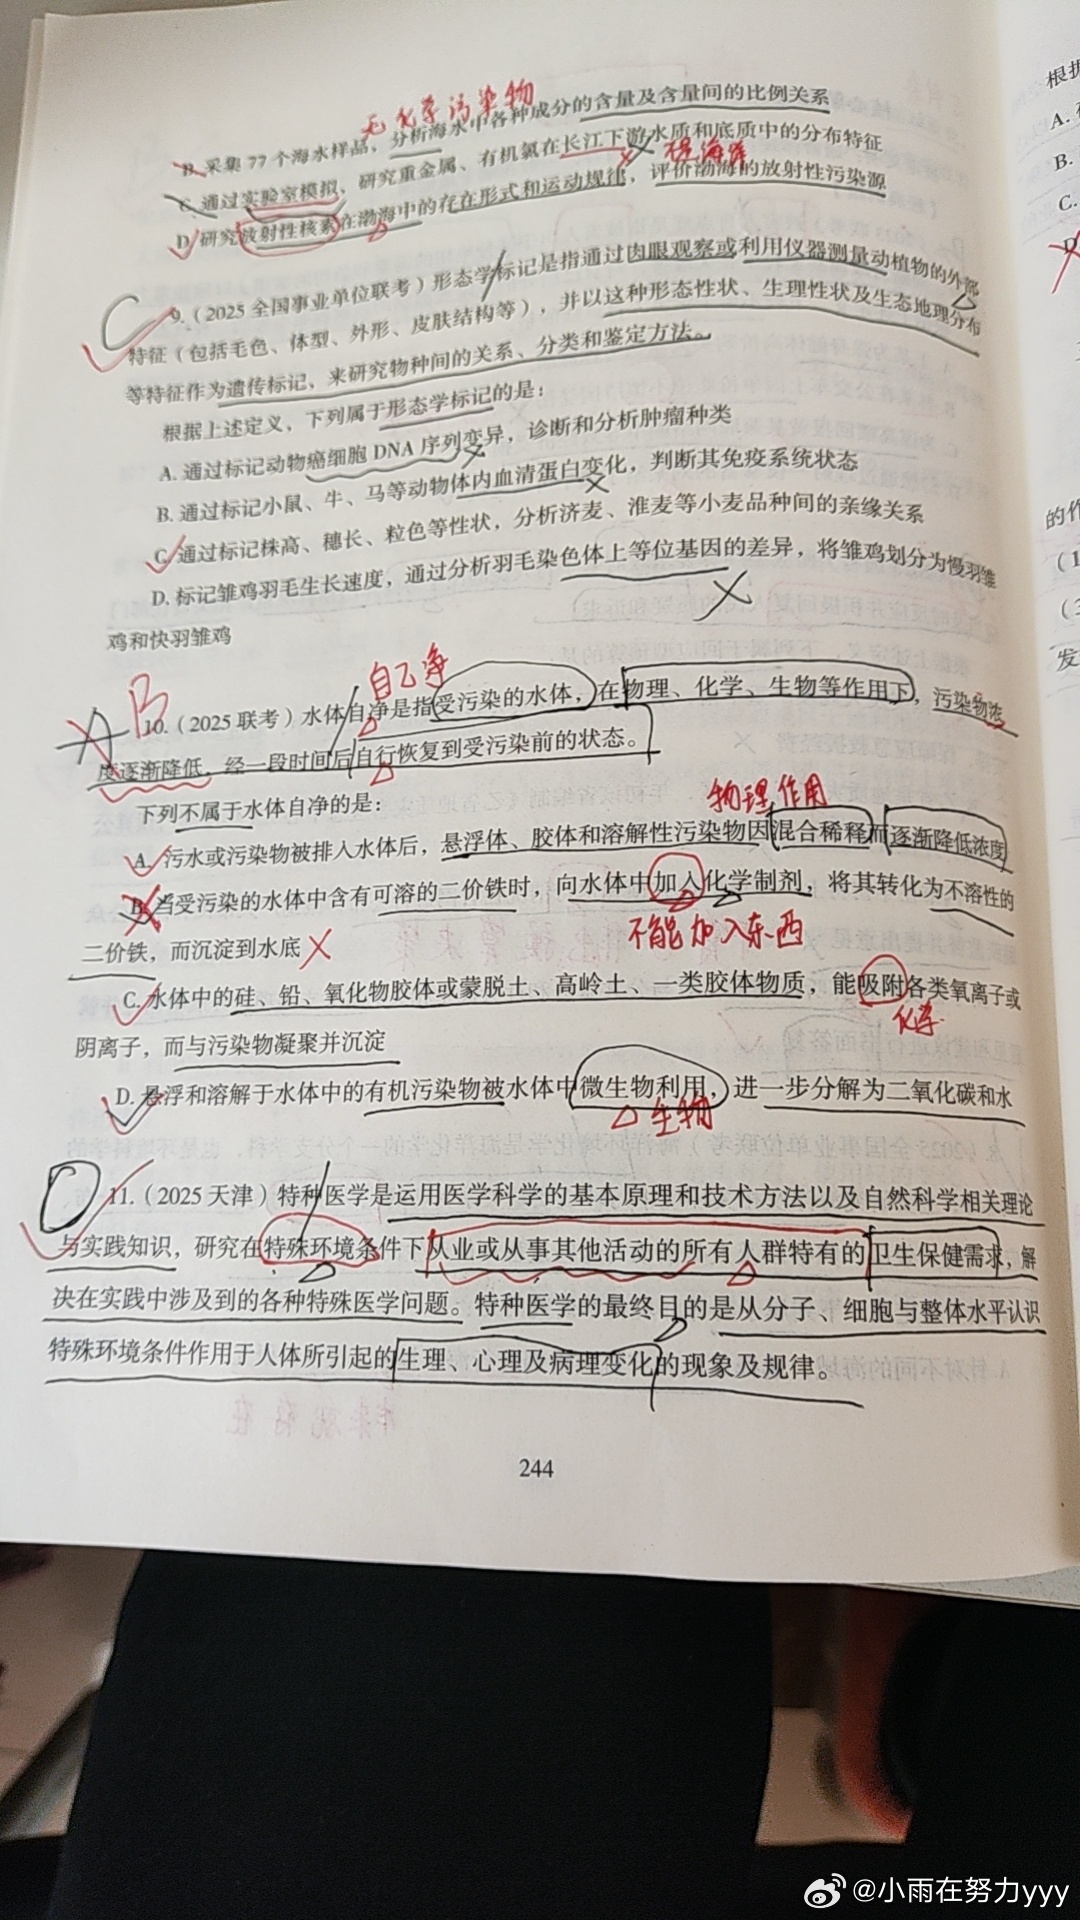 无化学污染物
B. 采集 77 个海水样品，分析海水中各种成分的含量及含量间的比例关系
C. 通过实验室模拟、研究重金属、有机氯在长江下游水质和底质中的分布特征
D. 研究放射性核素在渤海中的存在形式和运动规律，评价渤海的放射性污染源
C
9.（2025 全国事业单位联考）形态学标记是指通过肉眼观察或利用仪器测量动植物的外部
特征（包括毛色、体型、外形、皮肤结构等），并以这种形态性状、生理性状及生态地理分布
等特征作为遗传标记，来研究物种间的关系、分类和鉴定方法。
根据上述定义，下列属于形态学标记的是：
A. 通过标记动物癌细胞 DNA 序列变异，诊断和分析肿瘤种类
B. 通过标记小鼠、牛、马等动物体内血清蛋白变化，判断其免疫系统状态
C. 通过标记株高、穗长、粒色等性状，分析济麦、淮麦等小麦品种间的亲缘关系
D. 标记雏鸡羽毛生长速度，通过分析羽毛染色体上等位基因的差异，将雏鸡划分为慢羽雏
鸡和快羽雏鸡
自己净
A B
10.（2025 联考）水体自净是指受污染的水体，在物理、化学、生物等作用下，污染物浓
度逐渐降低，经一段时间后自行恢复到受污染前的状态。
下列不属于水体自净的是：
物理作用
A. 污水或污染物被排入水体后，悬浮体、胶体和溶解性污染物因混合稀释而逐渐降低浓度
B. 当受污染的水体中含有可溶的二价铁时，向水体中加入化学制剂，将其转化为不溶性的
二价铁，而沉淀到水底
不能加入东西
C. 水体中的硅、铅、氧化物胶体或蒙脱土、高岭土、一类胶体物质，能吸附各类氧离子或
化学
阴离子，而与污染物凝聚并沉淀
D. 悬浮和溶解于水体中的有机污染物被水体中微生物利用，进一步分解为二氧化碳和水
生物
11.（2025 天津）特种医学是运用医学科学的基本原理和技术方法以及自然科学相关理论
与实践知识，研究在特殊环境条件下从业或从事其他活动的所有人群特有的卫生保健需求，解
决在实践中涉及到的各种特殊医学问题。特种医学的最终目的是从分子、细胞与整体水平认识
特殊环境条件作用于人体所引起的生理、心理及病理变化的现象及规律。
244
根据
A.
B.
C.
D
的作
（1
发
@小雨在努力yyy